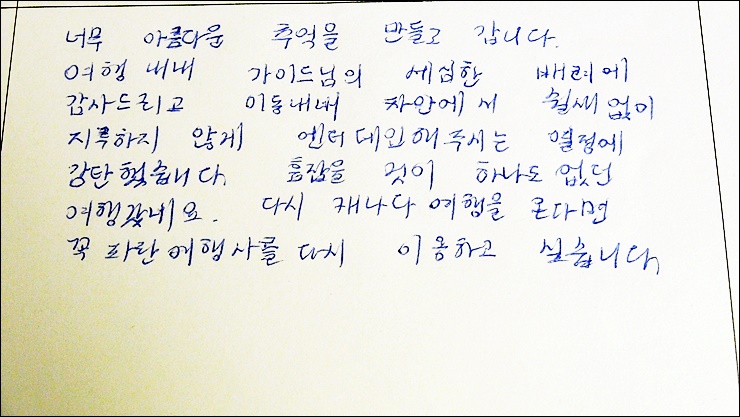 너무 아름다운 추억을 만들고 갑니다.
여행 내내 가이드님의 세심한 배려에
감사드리고 이동내내 차안에서 쉴새없이
지루하지 않게 엔터테인해주시는 열정에
감탄했습니다. 흠잡을 것이 하나도 없던
여행같네요. 다시 캐나다 여행을 온다면
꼭 파란여행사를 다시 이용하고 싶습니다.